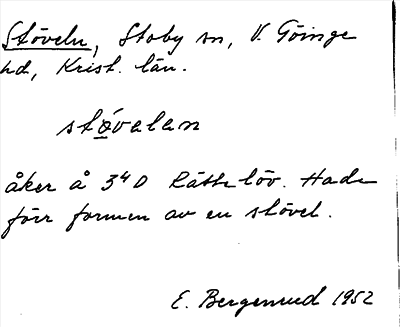 Stöveln, Stoby sn, V. Göinge
hd, Krist. län.
stǫ́valan
åker å 3⁴ D Rättelöv. Hade
förr formen av en stövel.
E. Bergenrud 1952